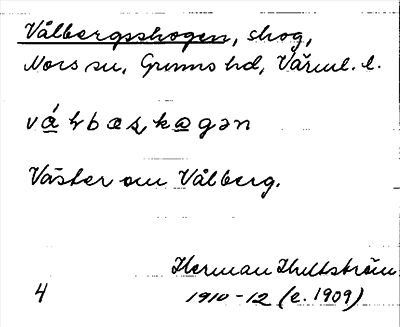 Vålbergsskogen, skog,
Nors sn, Grums hd, Värml. l.
vá̱ɫbæʂka̱gən
Väster om Vålberg.
Herman Hultström
4 1910-12 (e. 1909)